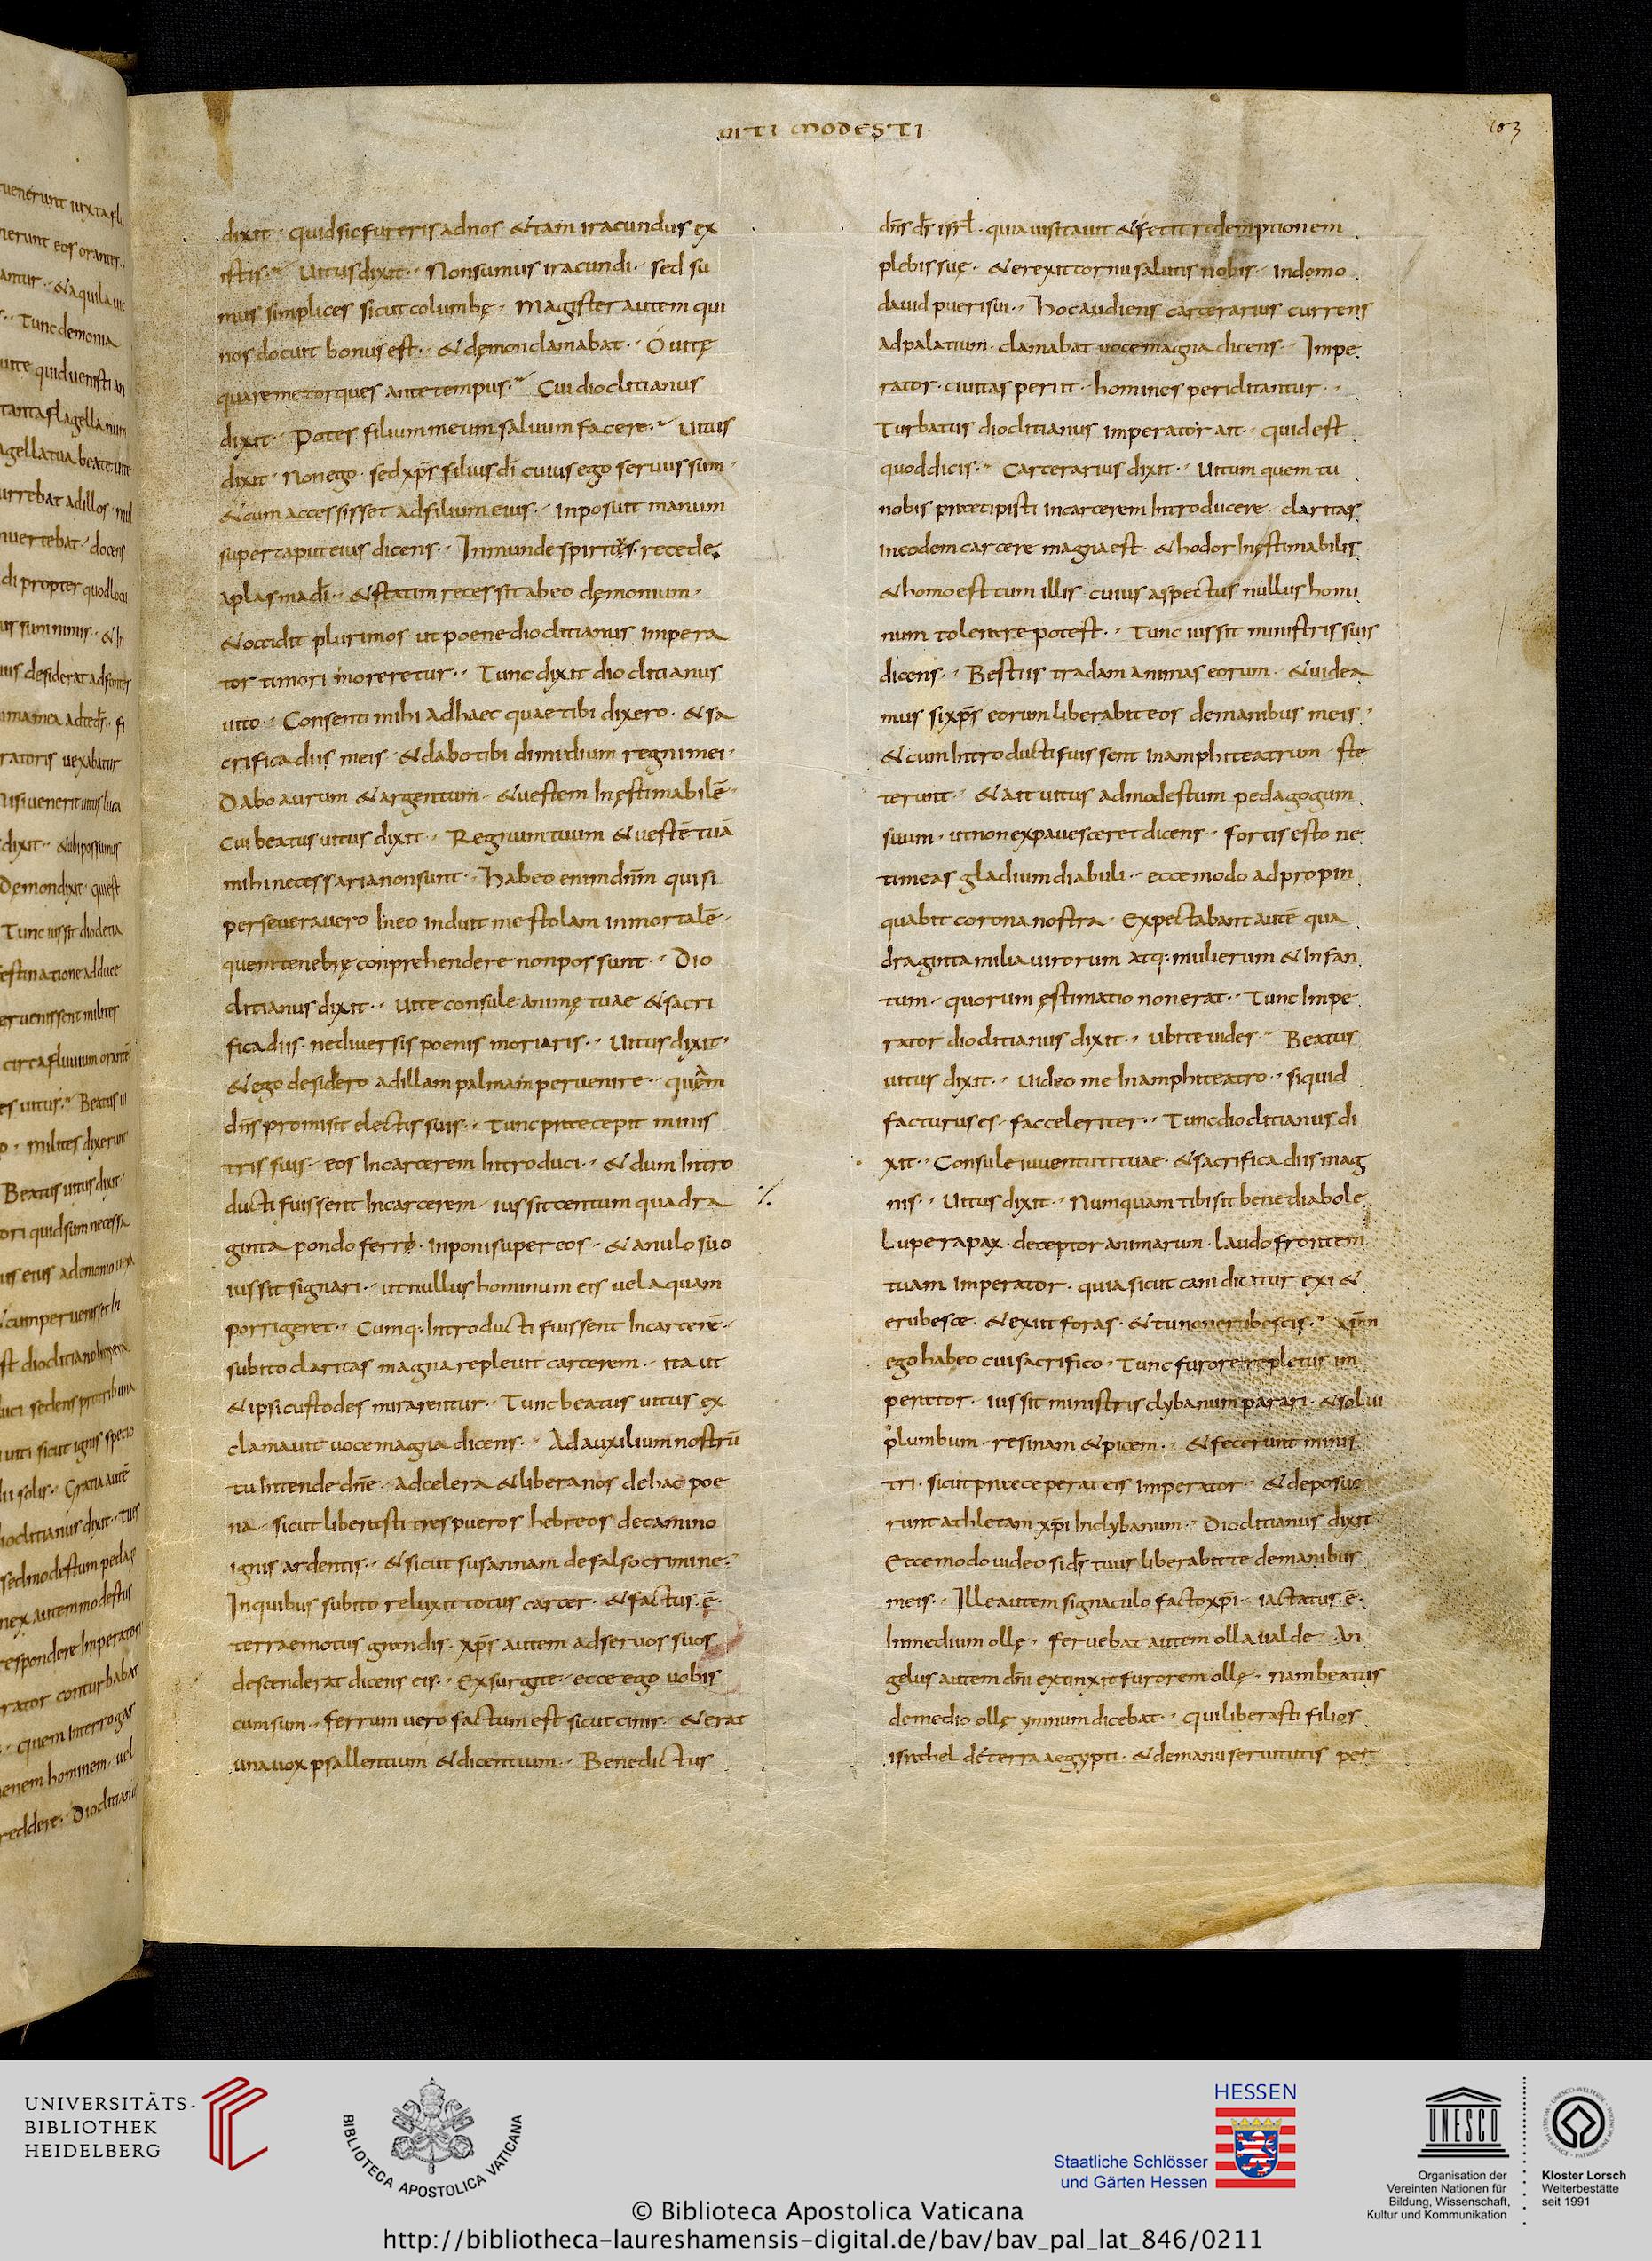 UITI MODESTI
103
dixit · quid sic fureris ad nos & tam iracundus ex
istis · Uitus dixit · Non sumus iracundi · sed su
mus simplices sicut columbę · Magister autem qui
nos docuit bonus est · & dęmon clamabat · Ó uite
quare me torques ante tempus · Cui dioclitianus
dixit · Potes filium meum saluum facere · Uitus
dixit · Non ego · sed xp̄s filius dī cuius ego seruus sum ·
& cum accessisset ad filium eius · inposuit manum
super caput eius dicens · Inmunde spiritus recede
a plasma dī · & statim recessit ab eo dęmonium ·
& occidit plurimos ut poene dioclitianus impera
tor timori moreretur · Tunc dixit dioclitianus
uito · Consenti mihi ad haec quae tibi dixero · & sa
crifica diis meis · & dabo tibi dimidium regni mei ·
Dabo aurum & argentum · & uestem inęstimabilē ·
Cui beatus uitus dixit · Regnum tuum & uestē tuā
mihi necessaria non sunt · Habeo enim dn̄m qui si
perseuerauero in eo induit me stolam inmortalē ·
quem tenebrę conprehendere non possunt · Dio
clitianus dixit · Uite consule animę tuae & sacri
fica diis · ne diuersis poenis moriaris · Uitus dixit ·
& ego desidero ad illam palmam peruenire · quem
dn̄s promisit electis suis · Tunc praecepit minis
tris suis · eos in carcerem introduci · & dum intro
ducti fuissent in carcerem · iussit centum quadra
ginta pondo ferro · inponi super eos · & anulo suo
iussit signari · ut nullus hominum eis uel aquam
porrigeret · Cumq: introducti fuissent in carcerē ·
subito claritas magna repleuit carcerem · ita ut
& ipsi custodes mirarentur · Tunc beatus uitus ex
clamauit uoce magna dicens · Ad auxilium nostrū
tu intende dn̄e · adcelera & libera nos de hac poe
na · sicut liberasti tres pueros hebreos de camino
ignis ardentis · & sicut susannam de falso crimine ·
In quibus subito reluxit totus carcer · & factus · ē ·
terrae motus grandis · xp̄s autem ad seruos suos
descenderat dicens eis · Exsurgite · ecce ego uobis
cum sum · ferrum uero factum est sicut cinis · & erat
una uox psallentium & dicentium · Benedictus
dn̄s dī isrł · quia uisitauit & fecit redemptionem
plebis suę · & erexit cornu salutis nobis · In domo
dauid pueri sui · Hoc audiens carcerarius currens
ad palatium · clamabat uoce magna dicens · Impe
rator · ciuitas periit · homines periclitantur ·
Turbatus dioclitianus imperator ait · quid est
quod dicis · Carcerarius dixit · Uitum quem tu
nobis praecipisti in carcerem introducere · claritas
in eodem carcere magna est · & hodor inęstimabilis
& homo est cum illis cuius aspectus nullus homi
num tolerare potest · Tunc iussit ministris suis
dicens · Bestiis tradam animas eorum · & uidea
mus si xp̄s eorum liberabit eos de manibus meis ·
& cum introducti fuissent in amphiteatrum · ste
terunt · & ait uitus ad modestum pedagogum
suum · ut non expauesceret dicens · Fortis esto ne
timeas gladium diabuli · ecce modo adpropin
quabit corona nostra · Expectabant autē qua
draginta milia uirorum atq: mulierum & infan
tum · quorum ęstimatio non erat · Tunc impe
rator dioclitianus dixit · Ubi te uides · Beatus
uitus dixit · Uideo me in amphiteatro · siquid
facturus es · fac celeriter · Tunc dioclitianus di
xit · Consule iuuentuti tuae · & sacrifica diis mag
nis · Uitus dixit · Numquam tibi sit bene diabole
Lupe rapax · deceptor animarum · laudo frontem
tuam imperator · quia sicut cani dicatur exi &
erubesce · & exiit foras · & tu non erubescis · xp̄m
ego habeo cui sacrifico · Tunc furore repletus im
perator · iussit ministris clybanum parari · & solui
plumbum · resinam & picem · & fecerunt minis
tri · sicut praeceperat eis imperator · & deposue
runt athletam xp̄i in clybanum · Dioclitianus dixit
Ecce modo uideo si dī tuus liberabit te de manibus
meis · Ille autem signaculo facto xp̄i · iactatus · ē ·
in medium ollę · feruebat autem olla ualde · An
gelus autem dn̄i extinxit furorem ollę · nam beatus
de medio ollę ymnum dicebat · qui liberasti filios
israhel de terra aegypti · & de manu seruitutis per
UNIVERSITÄTS-
BIBLIOTHEK
HEIDELBERG
BIBLIOTECA APOSTOLICA VATICANA
HESSEN
Staatliche Schlösser
und Gärten Hessen
UNESCO
Organisation der
Vereinten Nationen für
Bildung, Wissenschaft,
Kultur und Kommunikation
Kloster Lorsch
Welterbestätte
seit 1991
© Biblioteca Apostolica Vaticana
http://bibliotheca-laureshamensis-digital.de/bav/bav_pal_lat_846/0211